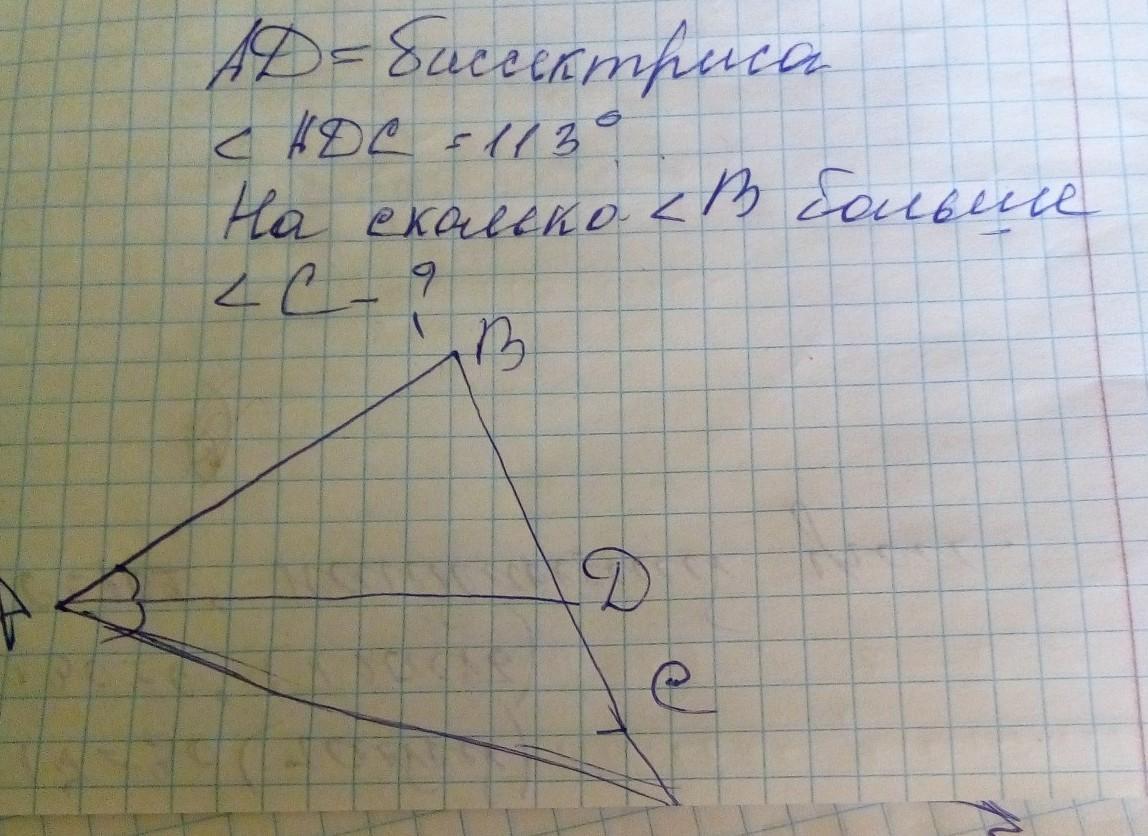 AD = биссектриса
< ADC = 113°
На сколько < B больше
< C - ?
B
A
D
C